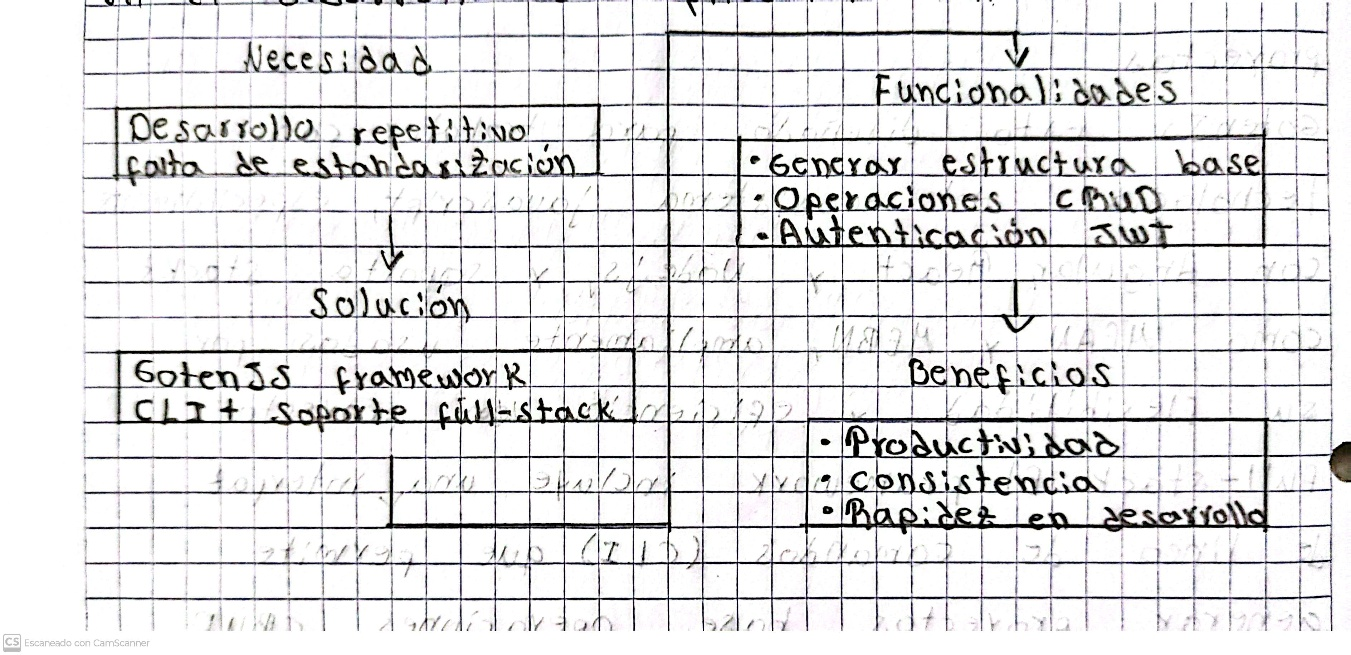 Necesidad
Desarrollo repetitivo
falta de estandarización
Solución
GotenJS framework
CLI + soporte full-stack
Funcionalidades
• Generar estructura base
• Operaciones CRUD
• Autenticación JWT
Beneficios
• Productividad
• Consistencia
• Rapidez en desarrollo
CS Escaneado con CamScanner